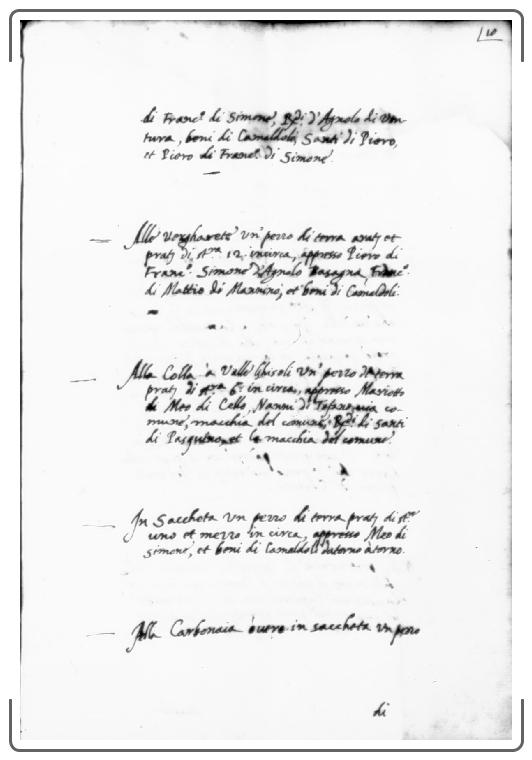 10
di Franc.o di Simone, R.di d'Agnolo di Ven-
tura, beni di Camaldoli, Santi di Piero,
et Piero di Franc.o di Simone.
Alle Vergharete un pezzo di terra arat.j et
prat.j di st.ra 12 incirca, appresso Piero di
Franc.o Simone d'Agnolo Franc.o
di Matteo di Mannino, et beni di Camaldoli.
Alla Colla a Valle un pezzo di terra
prat.j di st.ra 6 in circa, appresso Mariotto
di Meo di Cello, Nanni di Tofano, via co-
mune, macchia del comune, R.di di Santi
di Pasquino, et la macchia del comune.
In Saccheta un pezzo di terra prat.j di st.ro
uno et mezzo in circa, appresso Meo di
Simone, et beni di Camaldoli datorno atorno.
Alla Carbonaia overo in saccheta un pezzo
di